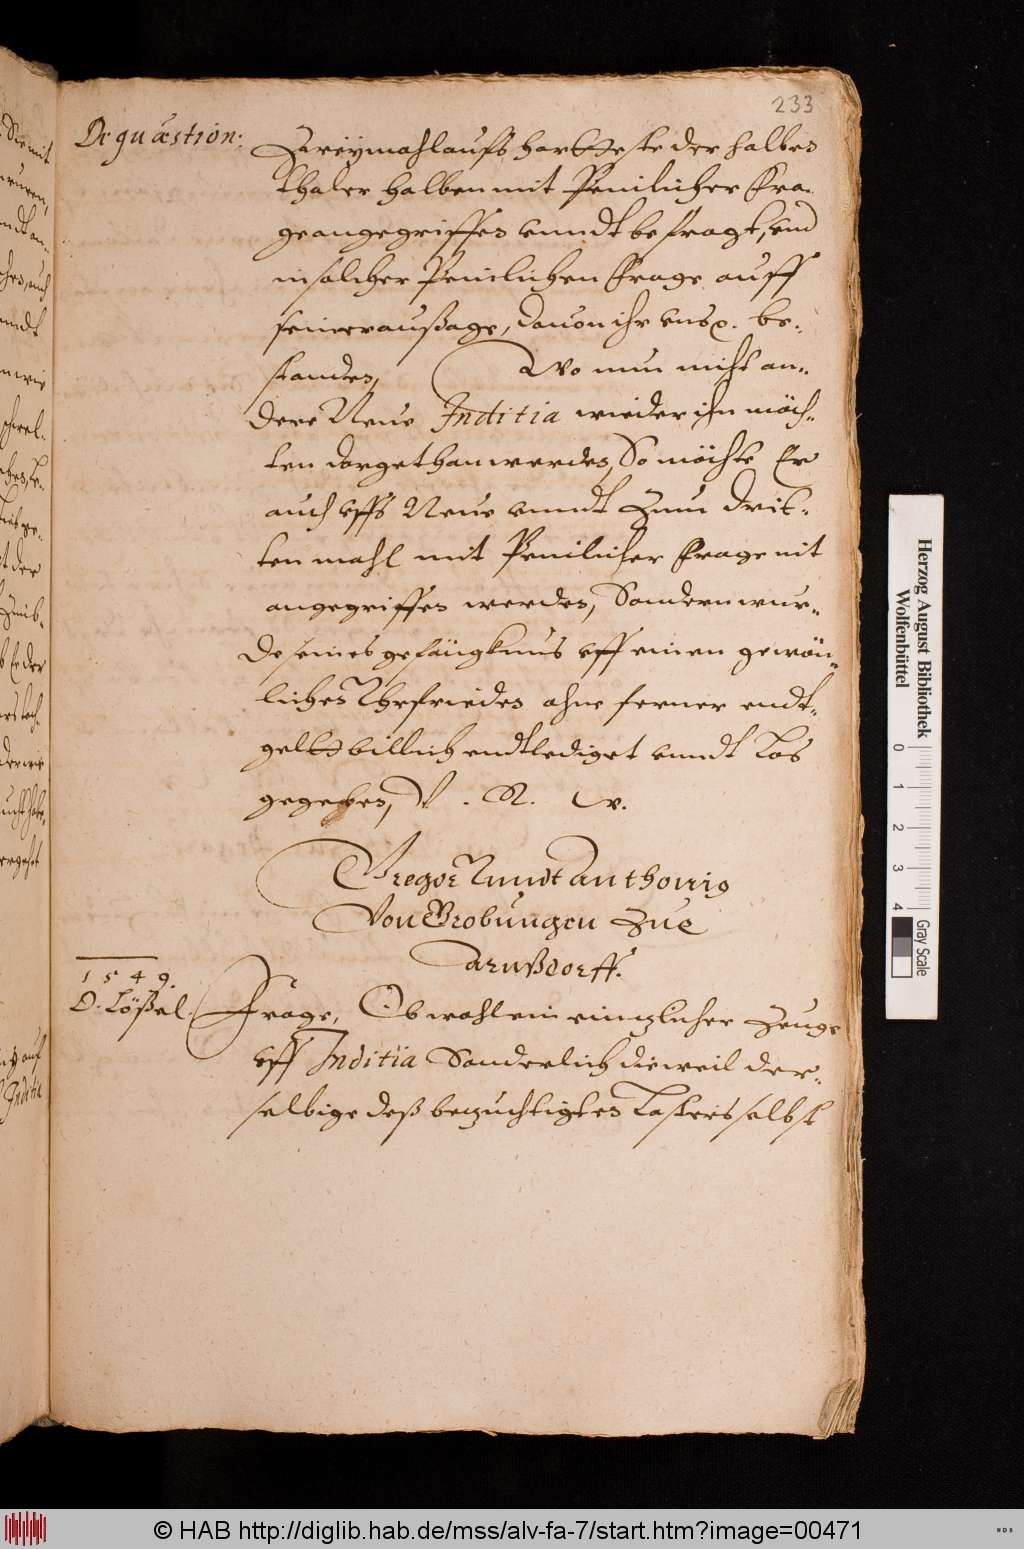 233
De quæstion:
Zweÿmahl aufs hartteste der halben
thaler halben mit Peinlicher Fra-
ge angegriffen vnndt befragt, vnd
in solcher Peinlichen Frage auff
seiner außage, dauon ihr vns be-
standen, Wo nun nicht an-
dere Neue Inditia wieder ihn möch-
ten dargethan werden, So möchte Er
auch vffs Neue vnndt Zum drit-
ten mahl mit Peinlicher Frage nit
angegriffen werden, Sondern wur-
de seines gefängknus vff einen gewön-
lichen Vhrfrieden ohne ferner endt-
geltt billich endtlediget vnndt Los
gegeben, V. R. W.
Gregor Vnndt Anthonig
Von Grobungen Zue
Arnßdorff.
1549.
D. Lößel. Frage, Ob wohl ein eintzlicher Zeuge
vff Inditia Sonderlich dieweil der-
selbige deß bezuchtigten Lasters selbst
Herzog August Bibliothek
Wolfenbüttel
0 1 2 3 4
Gray Scale
© HAB http://diglib.hab.de/mss/alv-fa-7/start.htm?image=00471